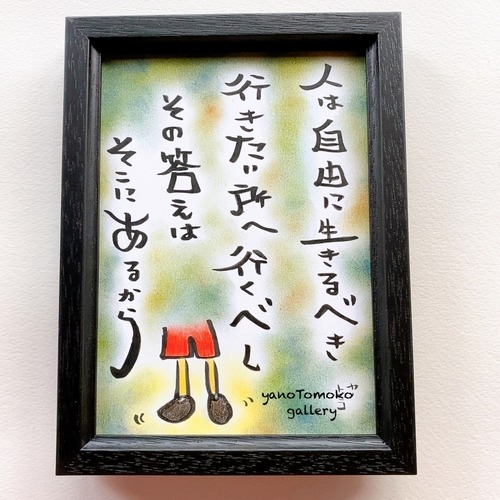 人は自由に生きるべき
行きたい所へ行くべし
その答えは
そこにあるから
yanoTomoko
gallery